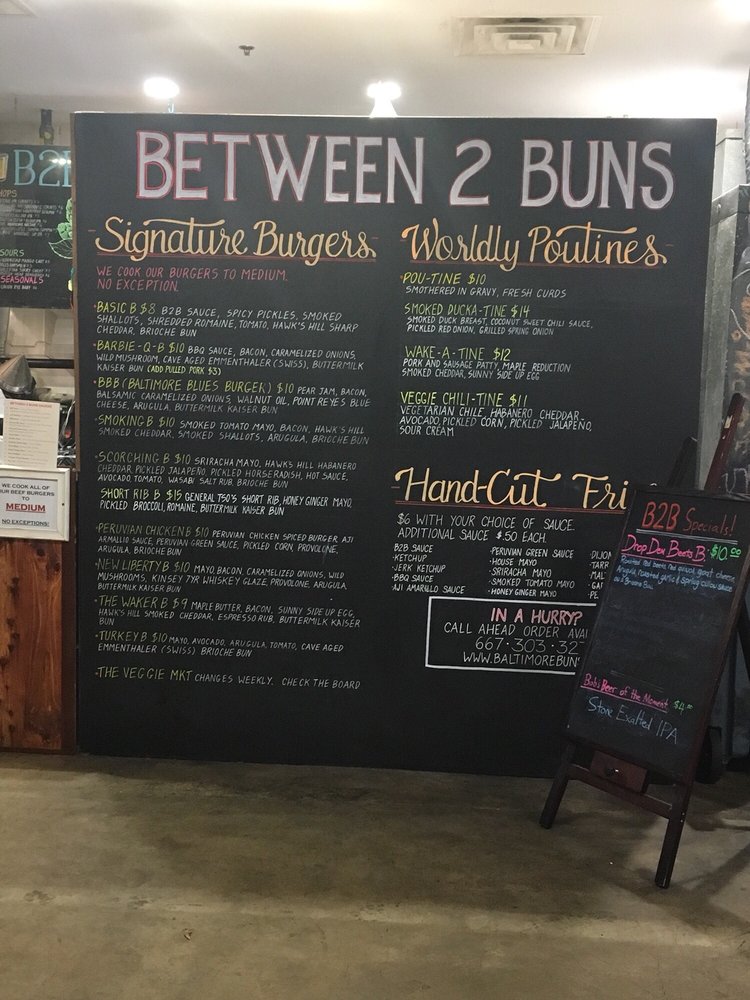 BETWEEN 2 BUNS
Signature Burgers
WE COOK OUR BURGERS TO MEDIUM.
NO EXCEPTION.
BASIC B $8 B2B SAUCE, SPICY PICKLES, SMOKED
SHALLOTS, SHREDDED ROMAINE, TOMATO, HAWK'S HILL SHARP
CHEDDAR, BRIOCHE BUN
BARBIE-Q-B $10 BBQ SAUCE, BACON, CARAMELIZED ONIONS,
WILD MUSHROOM, CAVE AGED EMMENTHALER (SWISS), BUTTERMILK
KAISER BUN (ADD PULLED PORK $3)
BBB (BALTIMORE BLUES BURGER) $10 PEAR JAM, BACON,
BALSAMIC CARAMELIZED ONIONS, WALNUT OIL, POINT REYES BLUE
CHEESE, ARUGULA, BUTTERMILK KAISER BUN
SMOKING B $10 SMOKED TOMATO MAYO, BACON, HAWK'S HILL
SMOKED CHEDDAR, SMOKED SHALLOTS, ARUGULA, BRIOCHE BUN
SCORCHING B $10 SRIRACHA MAYO, HAWK'S HILL HABANERO
CHEDDAR, PICKLED JALAPEÑO, PICKLED HORSERADISH, HOT SAUCE,
AVOCADO, TOMATO, WASABI SALT RUB, BRIOCHE BUN
SHORT RIB B $15 GENERAL TSO'S SHORT RIB, HONEY GINGER MAYO,
PICKLED BROCCOLI, ROMAINE, BUTTERMILK KAISER BUN
PERUVIAN CHICKEN B $10 PERUVIAN CHICKEN SPICED BURGER, AJI
AMARILLO SAUCE, PERUVIAN GREEN SAUCE, PICKLED CORN, PROVOLONE,
ARUGULA, BRIOCHE BUN
NEW LIBERTY B $10 MAYO, BACON, CARAMELIZED ONIONS, WILD
MUSHROOMS, KINSEY 7YR WHISKEY GLAZE, PROVOLONE, ARUGULA,
BUTTERMILK KAISER BUN
THE WAKER B $9 MAPLE BUTTER, BACON, SUNNY SIDE UP EGG,
HAWK'S HILL SMOKED CHEDDAR, ESPRESSO RUB, BUTTERMILK KAISER
BUN
TURKEY B $10 MAYO, AVOCADO, ARUGULA, TOMATO, CAVE AGED
EMMENTHALER (SWISS) BRIOCHE BUN
THE VEGGIE MKT CHANGES WEEKLY. CHECK THE BOARD
Worldly Poutines
POU-TINE $10
SMOTHERED IN GRAVY, FRESH CURDS
SMOKED DUCKA-TINE $14
SMOKED DUCK BREAST, COCONUT SWEET CHILI SAUCE,
PICKLED RED ONION, GRILLED SPRING ONION
WAKE-A-TINE $12
PORK AND SAUSAGE PATTY, MAPLE REDUCTION
SMOKED CHEDDAR, SUNNY SIDE UP EGG
VEGGIE CHILI-TINE $11
VEGETARIAN CHILE, HABANERO CHEDDAR
AVOCADO, PICKLED CORN, PICKLED JALAPEÑO,
SOUR CREAM
Hand-Cut Fri
$6 WITH YOUR CHOICE OF SAUCE.
ADDITIONAL SAUCE $.50 EACH.
B2B SAUCE
·KETCHUP
·JERK KETCHUP
·BBQ SAUCE
·AJI AMARILLO SAUCE
·PERUVIAN GREEN SAUCE
·HOUSE MAYO
·SRIRACHA MAYO
·SMOKED TOMATO MAYO
·HONEY GINGER MAYO
·DIJON
·TAR
·MAL
·GA
·PE
IN A HURRY?
CALL AHEAD ORDER AVA
667·303·32
WWW.BALTIMOREBUN
B2B Specials!
Drop Dem Beets B · $10.00
Roasted red beets, goat cheese,
Arugula, roasted garlic & spring onion
Bob's Beer of the Moment $4.00
Stone Exalted IPA
B2B
HOPS
SOURS
SEASONALS
WE COOK ALL OF
OUR BEEF BURGERS
TO
MEDIUM
NO EXCEPTIONS!